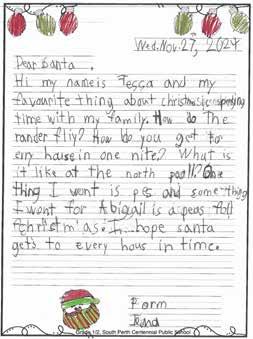 Wed. Nov. 27, 2024
Dear Santa.
Hi my name is Tessa and my
favourite thing about christmas is spending
time with my family. How do The
rander fliy? How do you get to
evry house in one nite? What is
it like at the north poall? One
thing I want is pes and some thing
I want for Abigail is a peas
for christm'as. I hope santa
gets to every hous in time.
Form
Grade 1/2, South Perth Centennial Public School